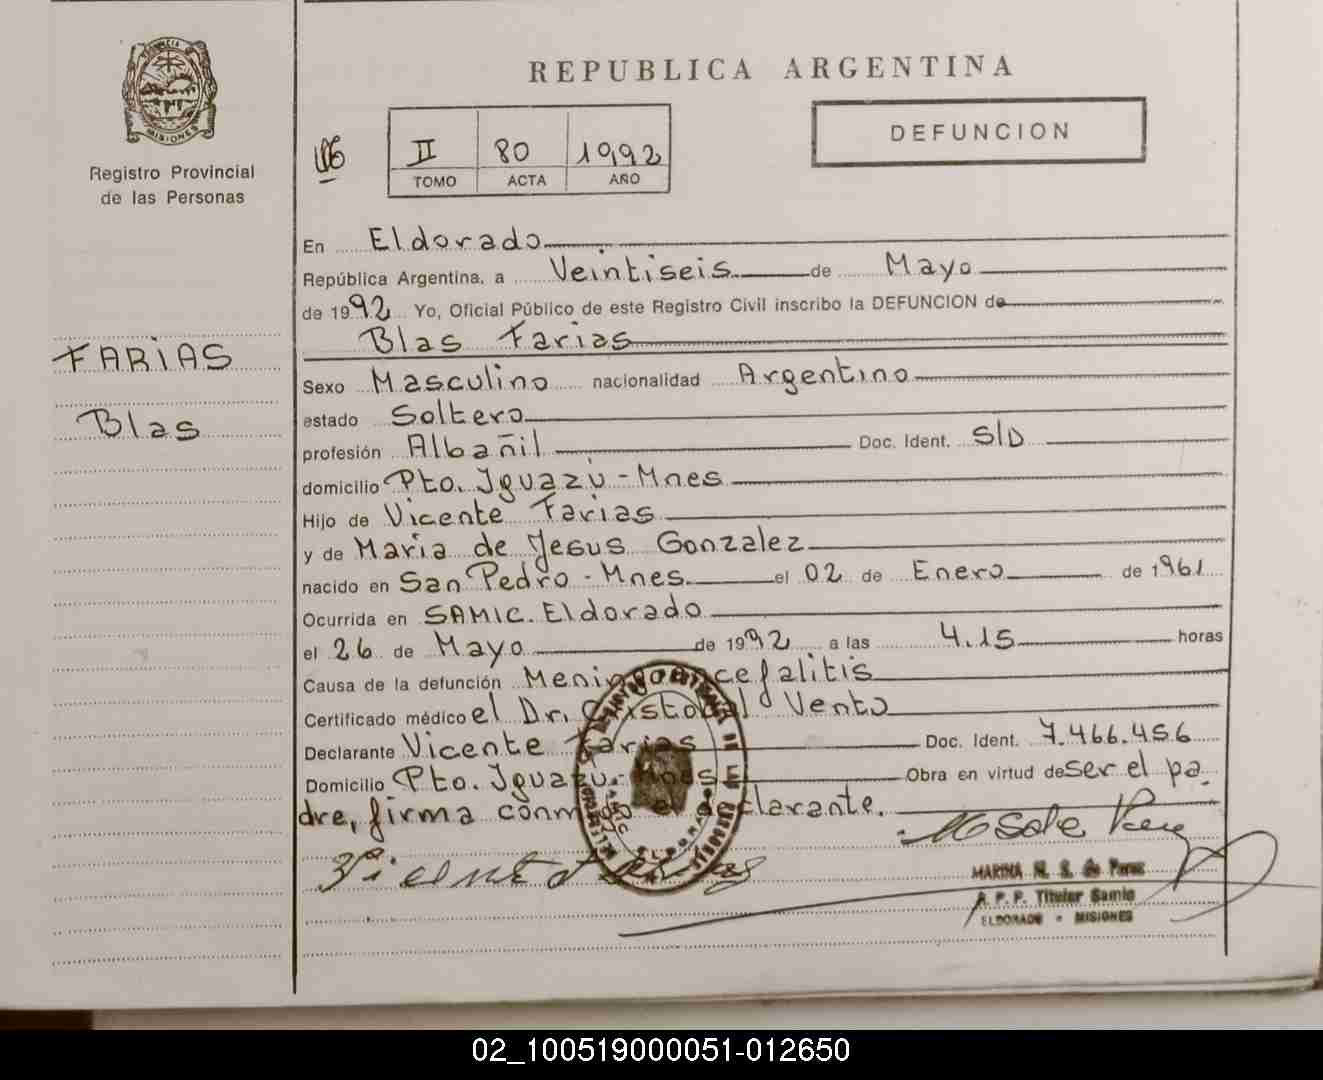 PROVINCIA DE MISIONES
Registro Provincial
de las Personas
FARIAS
Blas
REPUBLICA ARGENTINA
DEFUNCION
II 80 1992
TOMO ACTA AÑO
En Eldorado
República Argentina, a Veintiseis de Mayo
de 1992 Yo, Oficial Público de este Registro Civil inscribo la DEFUNCION de
Blas Farias
Sexo Masculino nacionalidad Argentino
estado Soltero
profesión Albañil Doc. Ident. S/D
domicilio Pto. Iguazú - Mnes
Hijo de Vicente Farias
y de Maria de Jesus Gonzalez
nacido en San Pedro - Mnes. el 02 de Enero de 1961
Ocurrida en SAMIC. Eldorado
el 26 de Mayo de 1992 a las 4.15 horas
Causa de la defunción Meningoencefalitis
Certificado médico el Dr. Cristobal Vento
Declarante Vicente Farias Doc. Ident. 7.466.456
Domicilio Pto. Iguazu - Mnes Obra en virtud de ser el pa
dre, firma conmigo el declarante.
Vicente Farias
MARINA M. S. de Perez
A. P. P. Titular Samic
ELDORADO - MISIONES
02_100519000051-012650